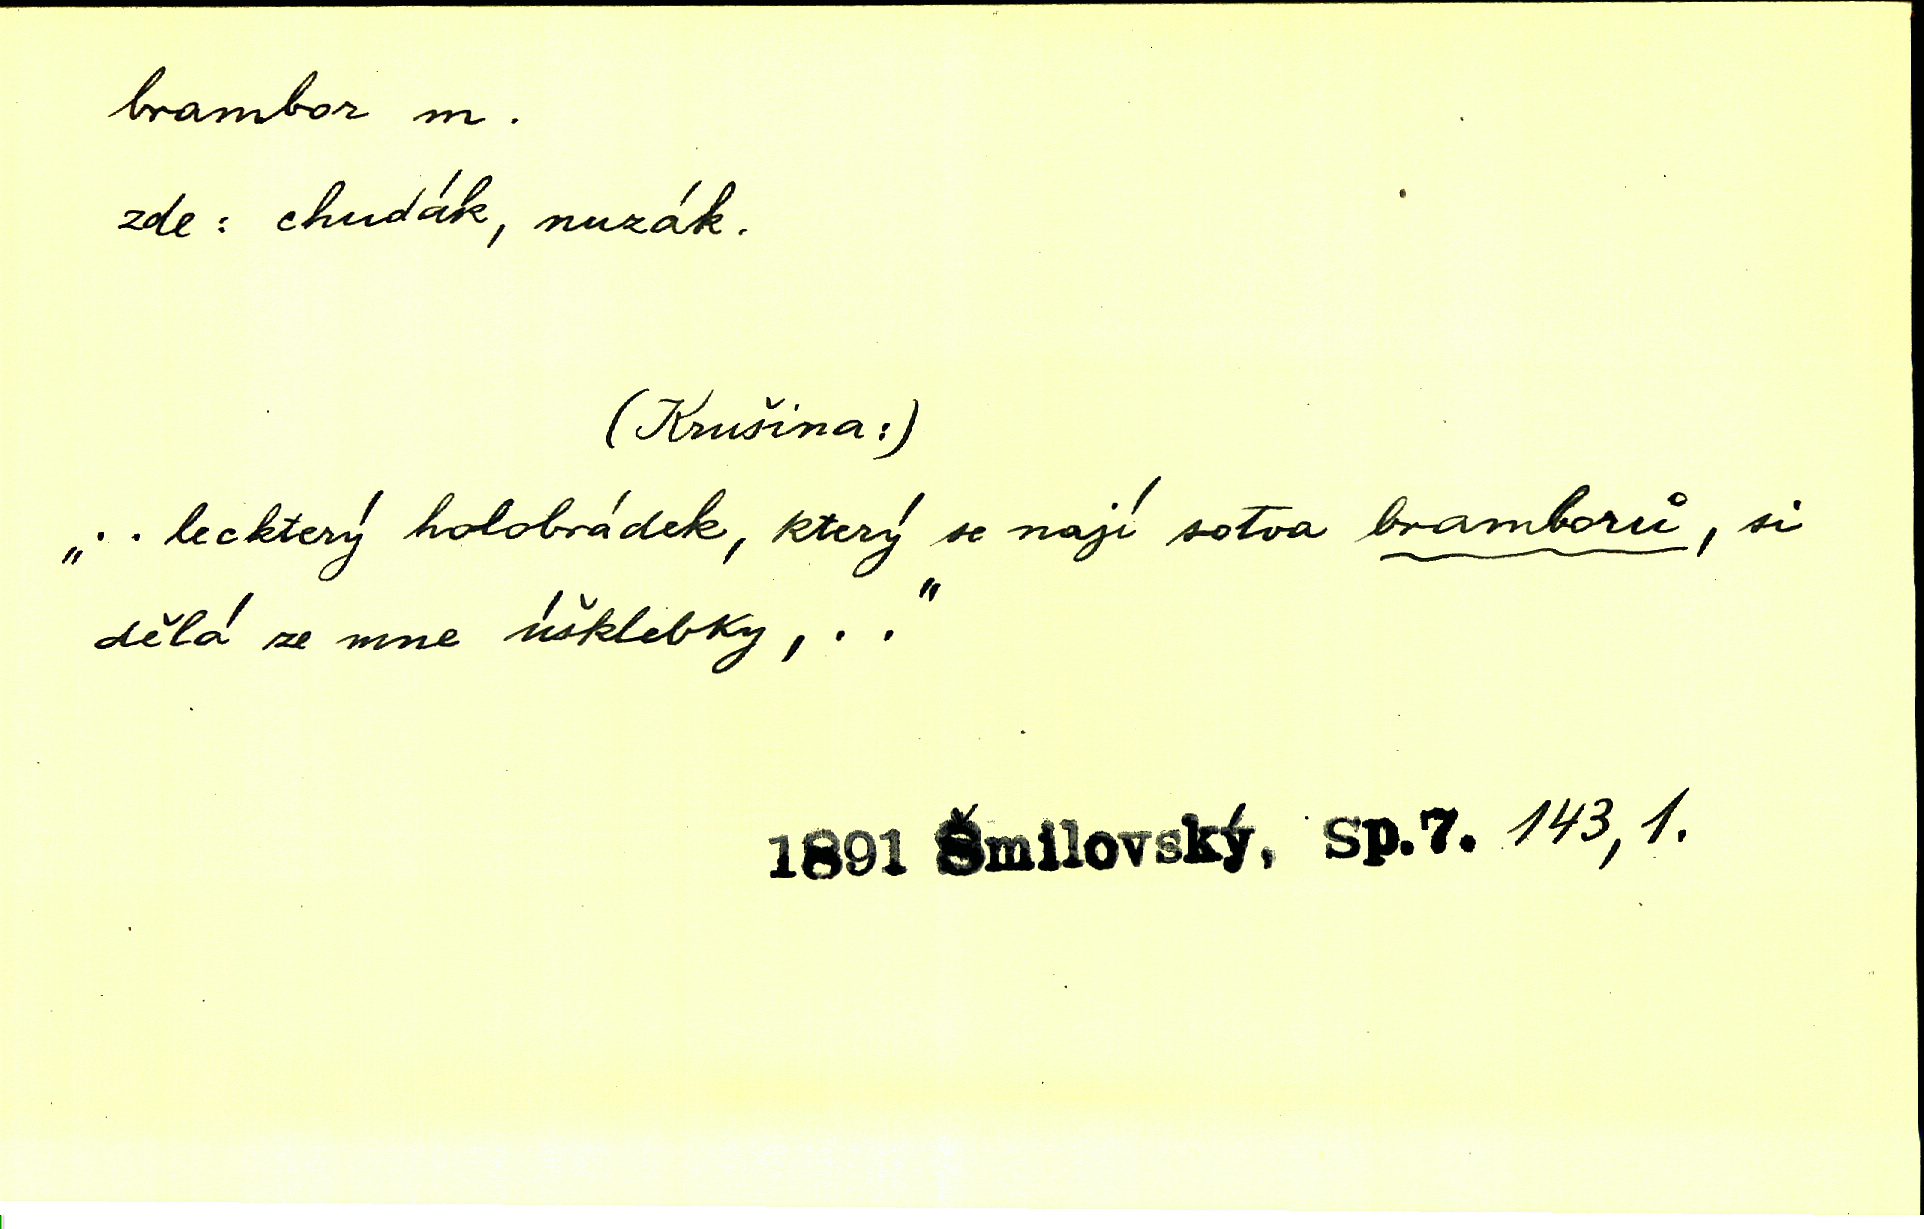 brambor m.
zde: chudák, nuzák.
(Krušina:)
„.. leckterý holobrádek, který se nají sotva bramborů, si
dělá ze mne úšklebky,.."
1891 Šmilovský, Sp.7. 143,1.